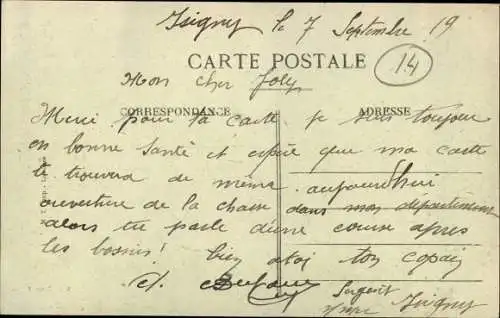 Isigny le 7 Septembre 19
CARTE POSTALE
14
Mon cher Joly
CORRESPONDANCE
ADRESSE
Merci pour ta carte je suis toujour
en bonne santé et espère que ma carte
te trouvera de même aujourd'hui
ouverture de la chasse dans mon département
alors tu parle d'une course apres
les bossus ! bien a toi ton copain
Sergent
Isigny